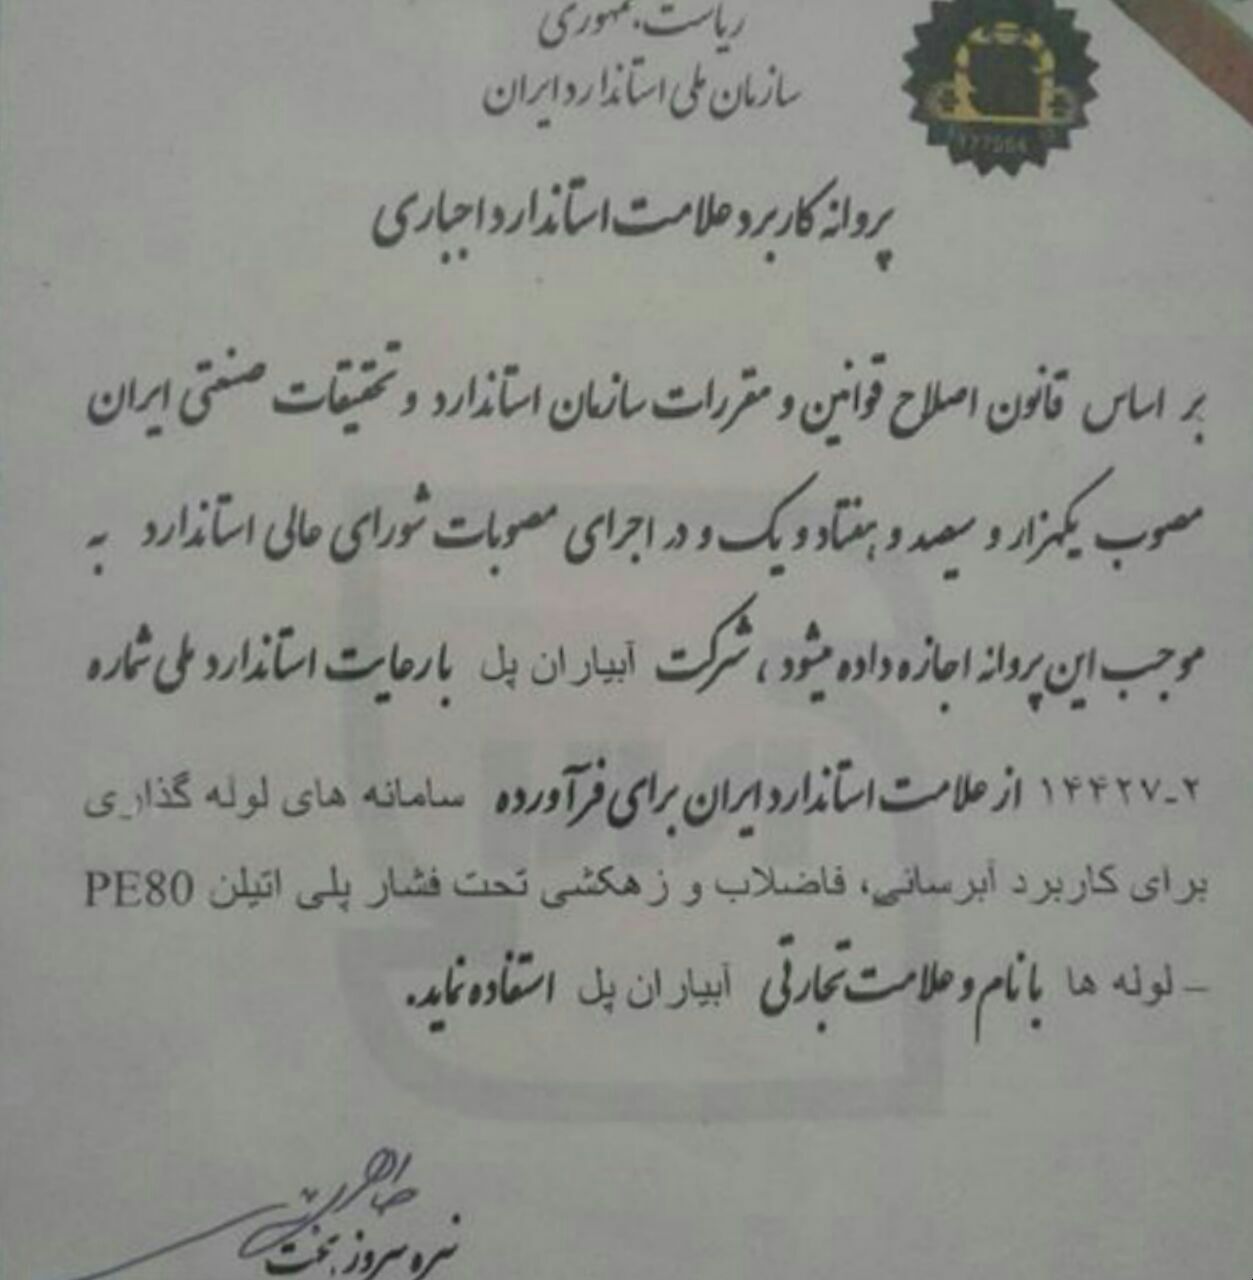 ریاست جمهوری
سازمان ملی استاندارد ایران
پروانه کاربرد علامت استاندارد اجباری
بر اساس قانون اصلاح قوانین و مقررات سازمان استاندارد و تحقیقات صنعتی ایران
مصوب یکهزار و سیصد و هفتاد و یک و در اجرای مصوبات شورای عالی استاندارد به
موجب این پروانه اجازه داده میشود، شرکت آبیاران پل با رعایت استاندارد ملی شماره
۱۴۴۲۷-۲ از علامت استاندارد ایران برای فرآورده سامانه های لوله گذاری
برای کاربرد آبرسانی، فاضلاب و زهکشی تحت فشار پلی اتیلن PE80
- لوله ها با نام و علامت تجارتی آبیاران پل استفاده نماید.
نیره پیروز بخت